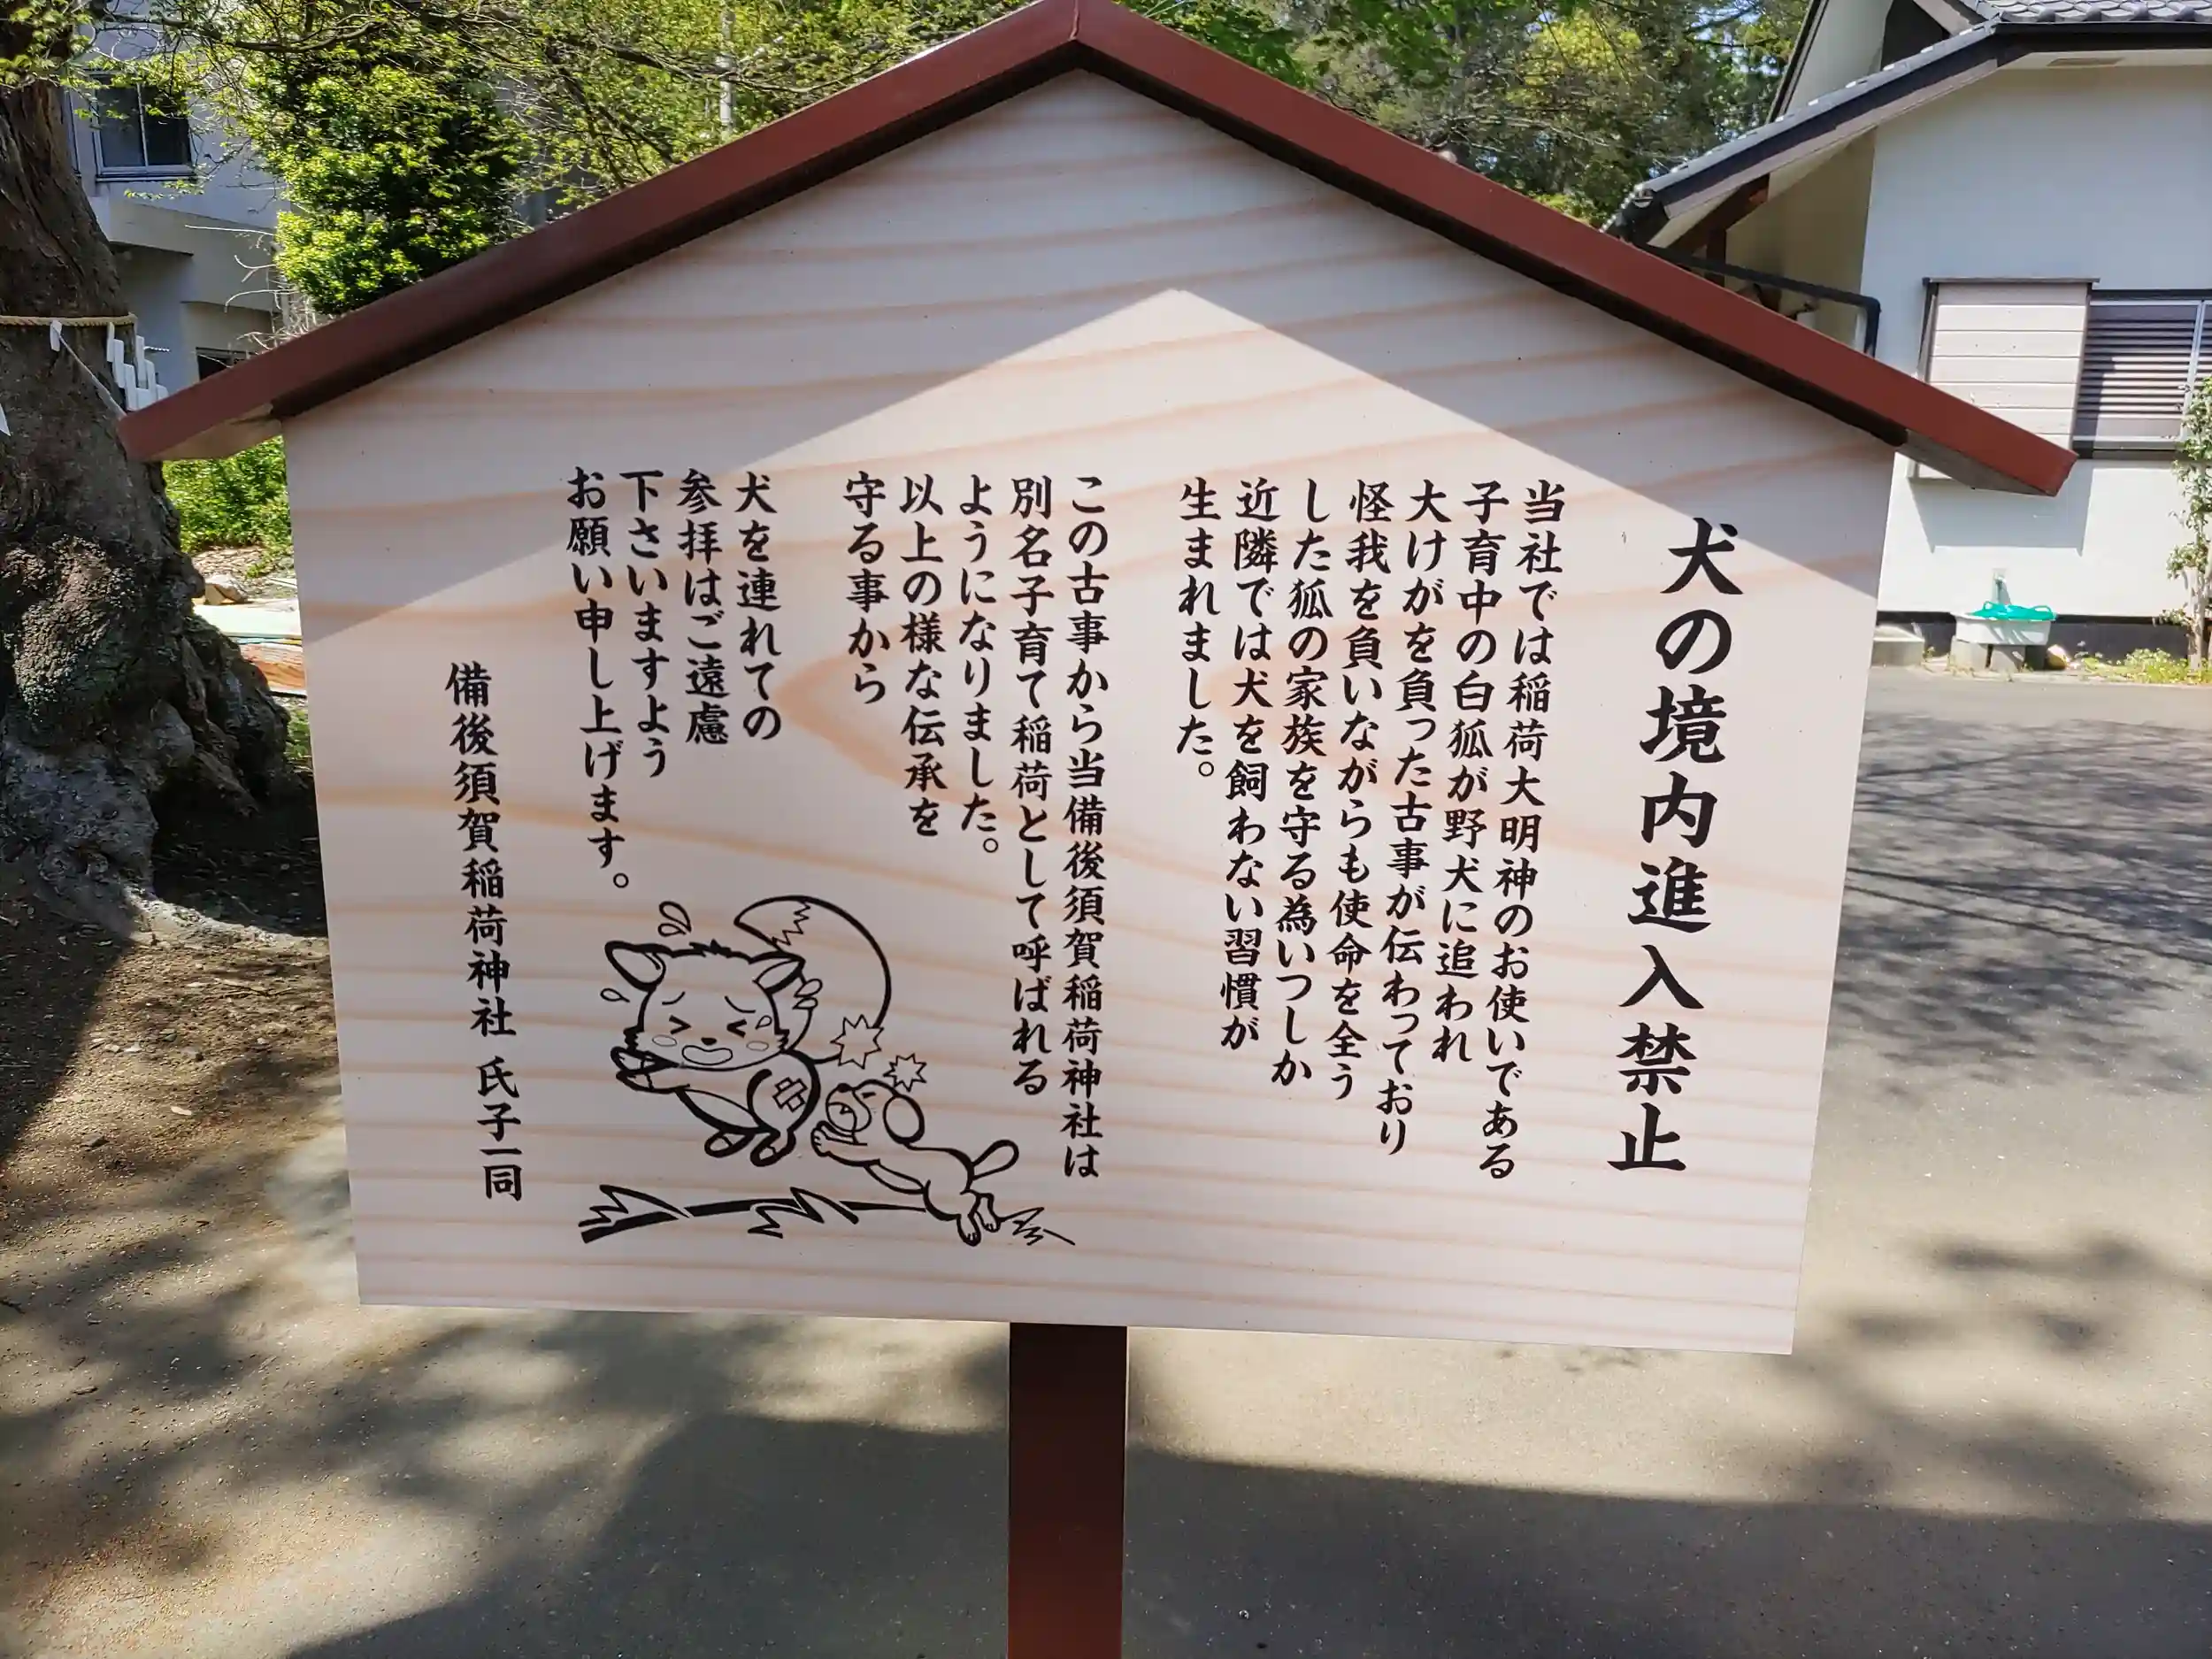 犬の境内進入禁止
当社では稲荷大明神のお使いである
子育中の白狐が野犬に追われ
大けがを負った古事が伝わっており
怪我を負いながらも使命を全う
した狐の家族を守る為いつしか
近隣では犬を飼わない習慣が
生まれました。
この古事から当備後須賀稲荷神社は
別名子育て稲荷として呼ばれる
ようになりました。
以上の様な伝承を
守る事から
犬を連れての
参拝はご遠慮
下さいますよう
お願い申し上げます。
備後須賀稲荷神社 氏子一同